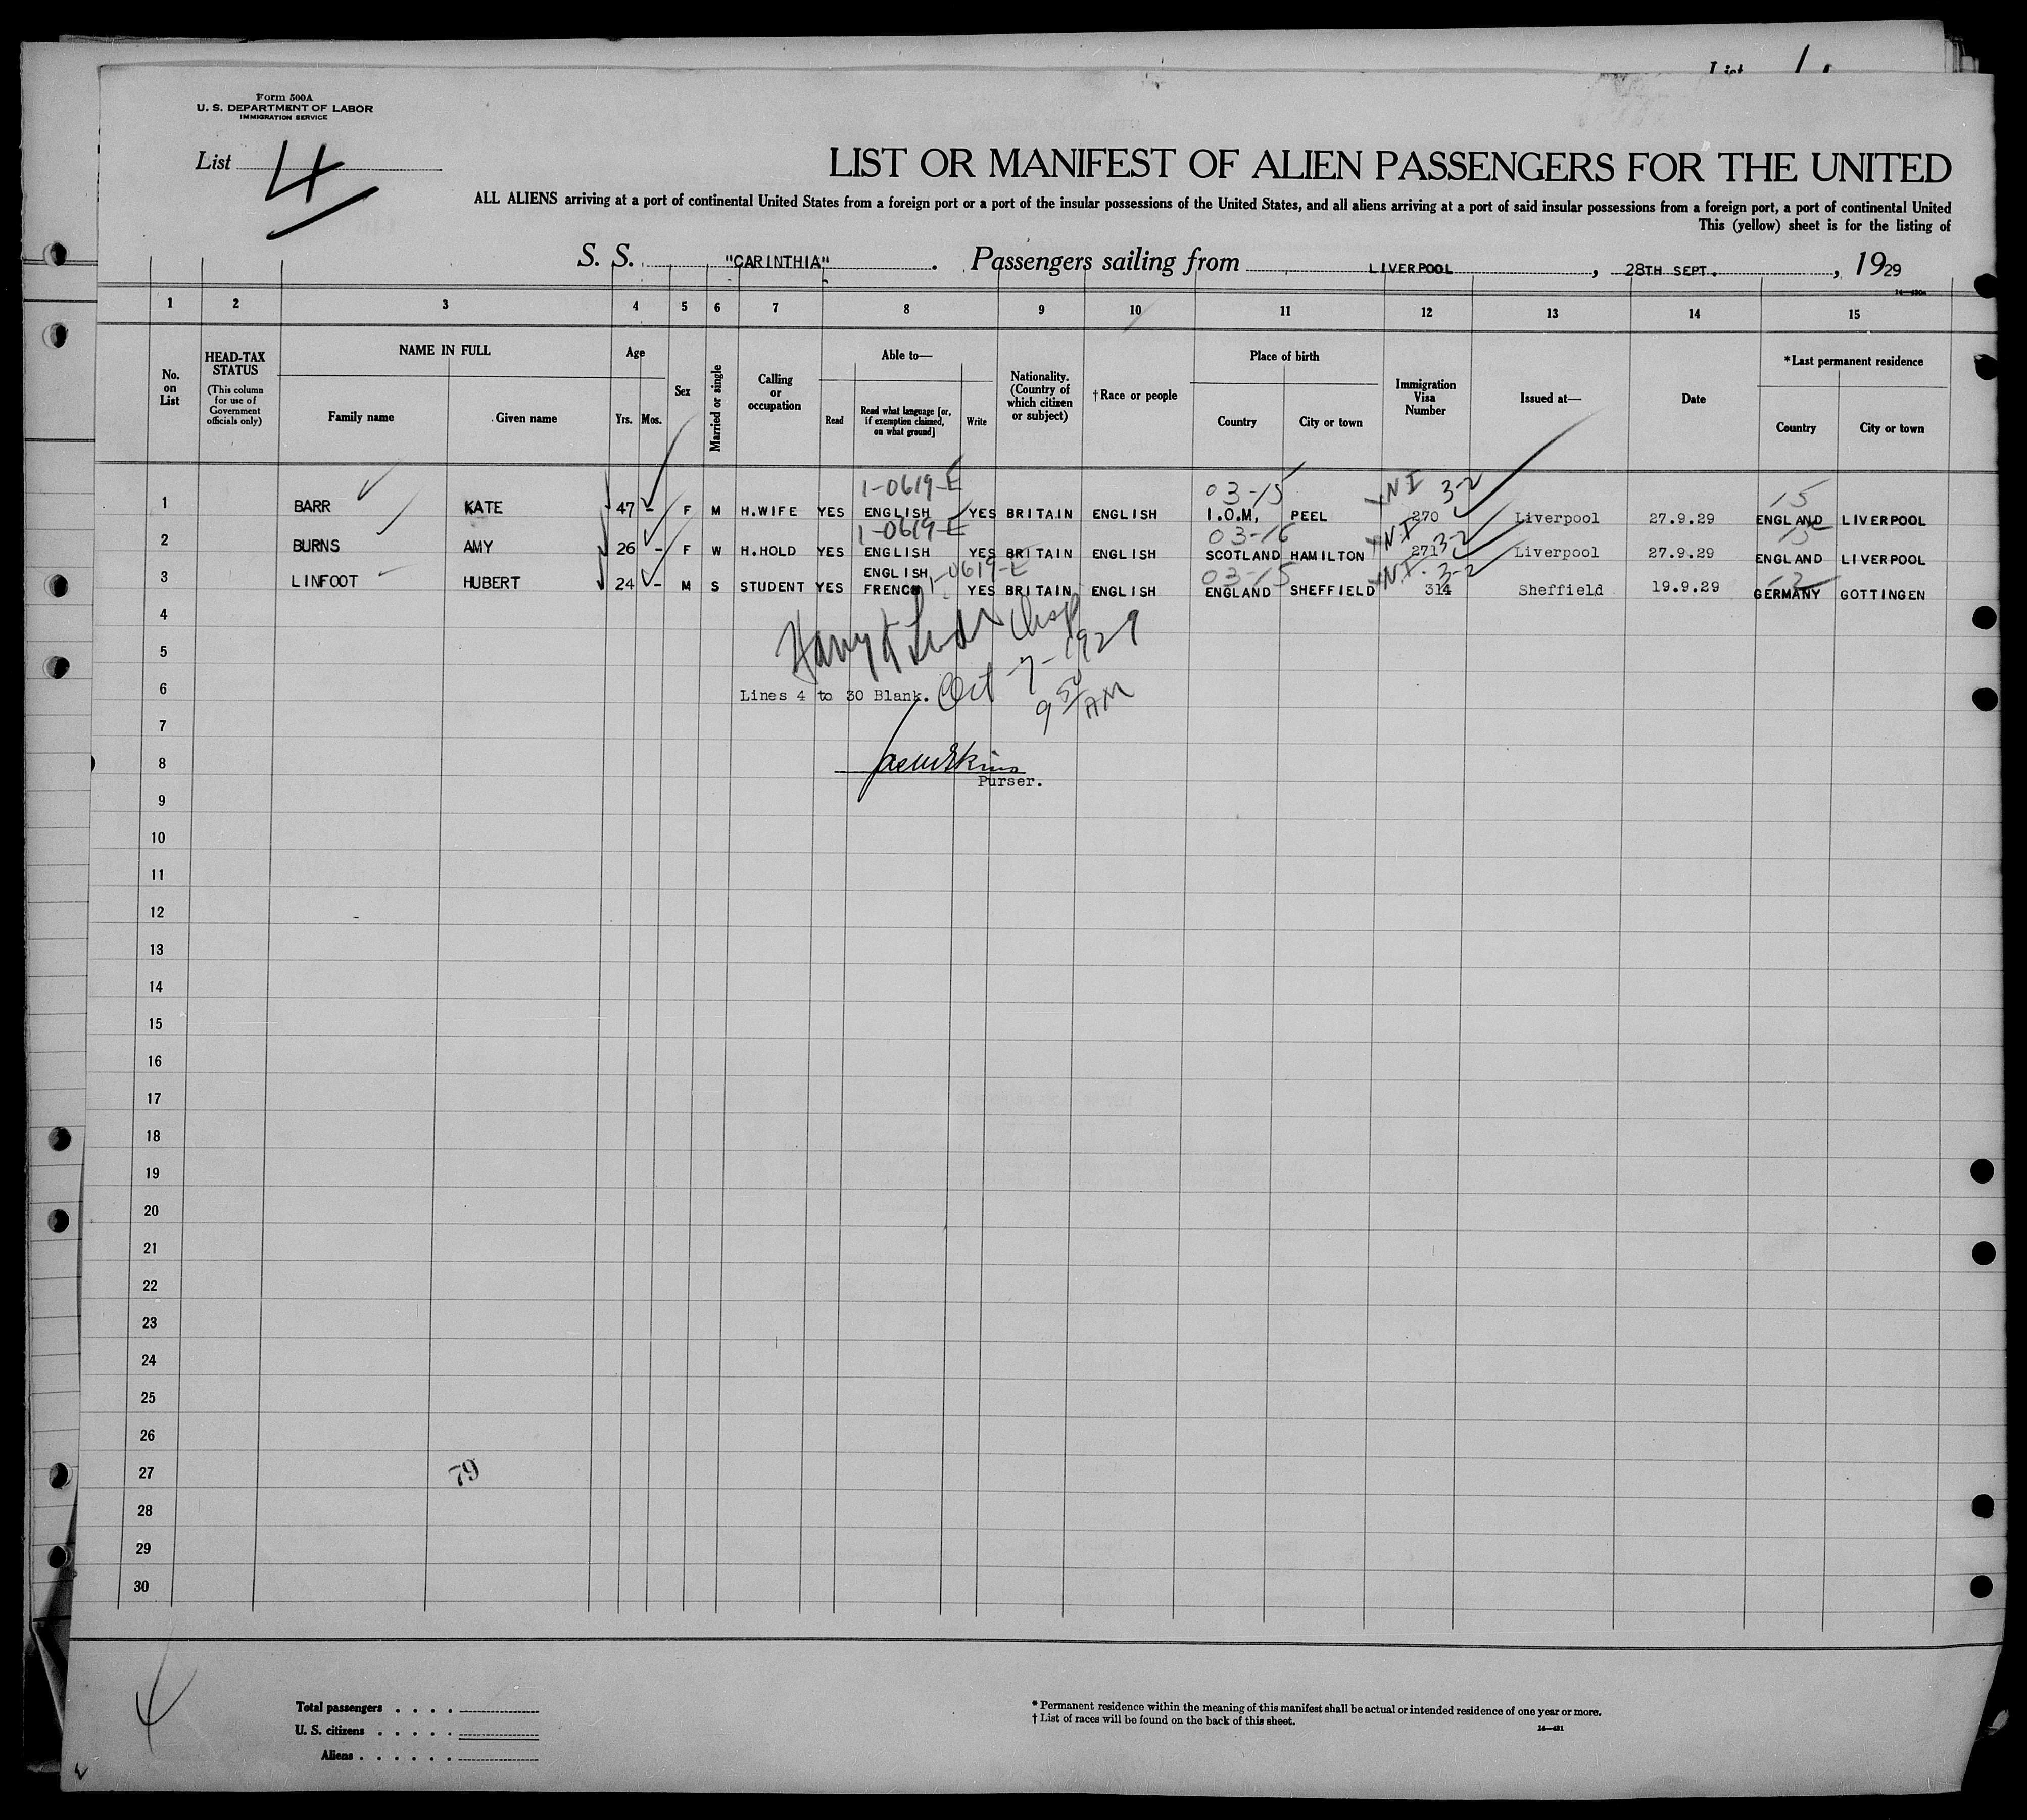 List
Form 500A
U. S. DEPARTMENT OF LABOR
IMMIGRATION SERVICE
List 4
LIST OR MANIFEST OF ALIEN PASSENGERS FOR THE UNITED
ALL ALIENS arriving at a port of continental United States from a foreign port or a port of the insular possessions of the United States, and all aliens arriving at a port of said insular possessions from a foreign port, a port of continental United
This (yellow) sheet is for the listing of
S. S. "CARINTHIA". Passengers sailing from LIVERPOOL, 28TH SEPT., 1929
1 2 3 4 5 6 7 8 9 10 11 12 13 14 15
No. on List
HEAD-TAX STATUS
(This column for use of Government officials only)
NAME IN FULL
Family name Given name
Age
Yrs. Mos.
Sex
Married or single
Calling or occupation
Able to—
Read
Read what language [or, if exemption claimed, on what ground]
Write
Nationality. (Country of which citizen or subject)
†Race or people
Place of birth
Country City or town
Immigration Visa Number
Issued at—
Date
*Last permanent residence
Country City or town
1-0619-E 03-15 XNI 3-2 15
1 BARR KATE 47 - F M H.WIFE YES ENGLISH YES BRITAIN ENGLISH I.O.M, PEEL 270 Liverpool 27.9.29 ENGLAND LIVERPOOL
1-0619-E 03-16 XNI 3-2 15
2 BURNS AMY 26 - F W H.HOLD YES ENGLISH YES BRITAIN ENGLISH SCOTLAND HAMILTON 271 Liverpool 27.9.29 ENGLAND LIVERPOOL
1-0619-E 03-15 XNI. 3-2
3 LINFOOT HUBERT 24 - M S STUDENT YES ENGLISH, FRENCH YES BRITAIN ENGLISH ENGLAND SHEFFIELD 314 Sheffield 19.9.29 GERMANY GOTTINGEN
4
5
Oct 7-1929
6 Lines 4 to 30 Blank.
9 50 AM
7
8
Purser.
9
10
11
12
13
14
15
16
17
18
19
20
21
22
23
24
25
26
27 79
28
29
30
Total passengers . . . .
U. S. citizens . . . . .
Aliens . . . . . .
* Permanent residence within the meaning of this manifest shall be actual or intended residence of one year or more.
† List of races will be found on the back of this sheet.
14—431